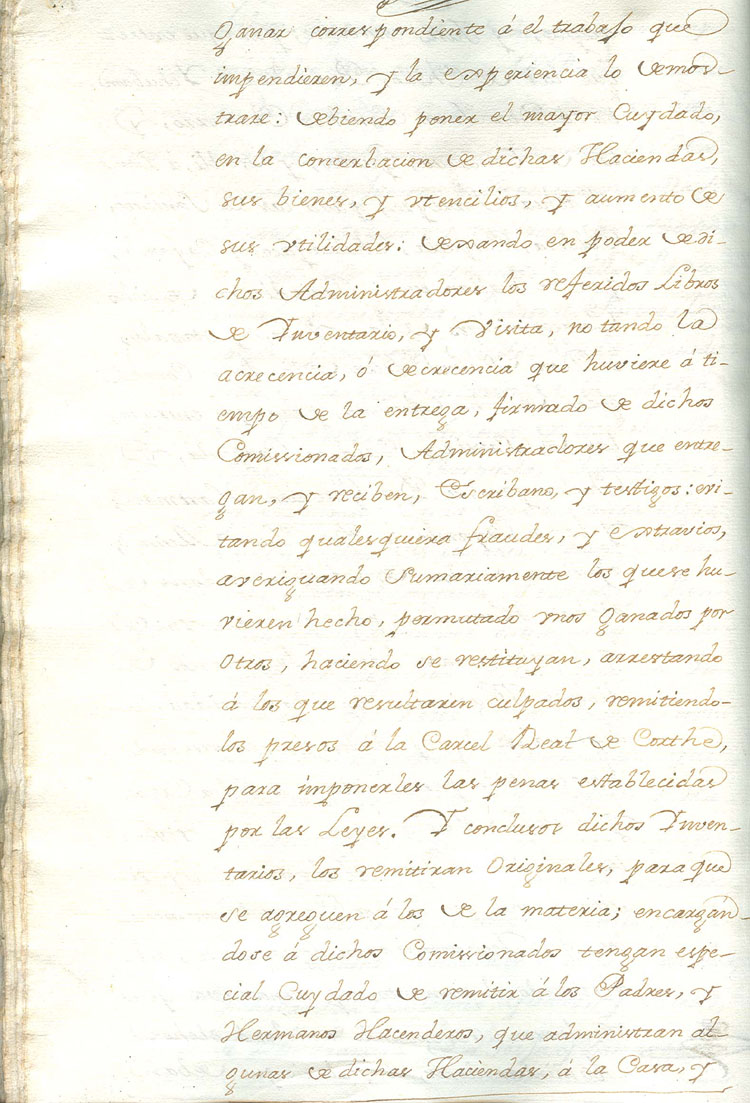 Ganar correspondiente á el trabajo que
impendieren, y la experiencia lo demos-
trare: debiendo poner el mayor Cuydado,
en la concerbacion de dichas Haciendas,
sus bienes, y vtencilios, y aumento de
sus vtilidades: dexando en poder de di-
chos Administradores los referidos Libros
de Inventario, y Visita, notando la
acrecencia, ó decrecencia que huviere á ti-
empo de la entrega, firmado de dichos
Comissionados, Administradores que entre-
gan, y reciben, Escribano, y testigos: evi-
tando qualesquiera fraudes, y extravios,
averiguando Sumariamente los que se hu-
vieren hecho, permutado vnos ganados por
otros, haciendo se restituyan, arrestando
á los que resultaren culpados, remitiendo-
los presos á la Carcel Real de Corthe,
para imponerles las penas establecidas
por las Leyes. Y conclusos dichos Inven-
tarios, los remitiran Originales, para que
se agreguen á los de la materia; encargán-
dose á dichos Comissionados tengan espe-
cial Cuydado de remitir á los Padres, y
Hermanos Hacenderos, que administran al-
gunas de dichas Haciendas, á la Casa, y